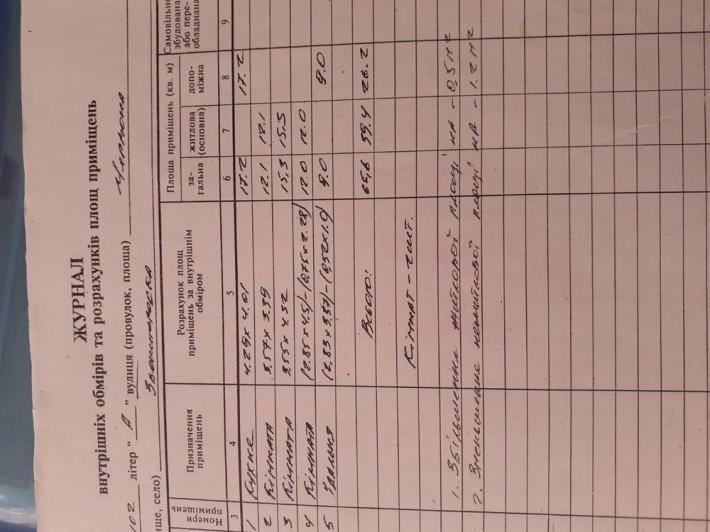 ЖУРНАЛ
внутрішніх обмірів та розрахунків площ приміщень
літер " А " вулиця (провулок, площа)
ище, село)
Номери приміщень
Призначення приміщень
Розрахунок площ приміщень за внутрішнім обміром
Площа приміщень (кв. м)
за-гальна
житлова (основна)
допо-міжна
Самовільно збудована або пере-обладнана
3 4 5 6 7 8 9
1 Кухне 4.29 x 4.01 17.2 17.2
2 Кімната 3,57 x 3.39 12.1 12.1
3 Кімната 3,55 x 4.32 15,3 15.3
4 Кімната (2.85 x 4.5)-(0.75 x 2.28) 12.0 12.0
5 Їдальня 9.0 9.0
Всього: 65,6 39,4 26.2
Кімнат -
1. Збільшення житлової площі на - 0,5 м2
2. Зменьшение нежитлової площі на - 1.2 м2